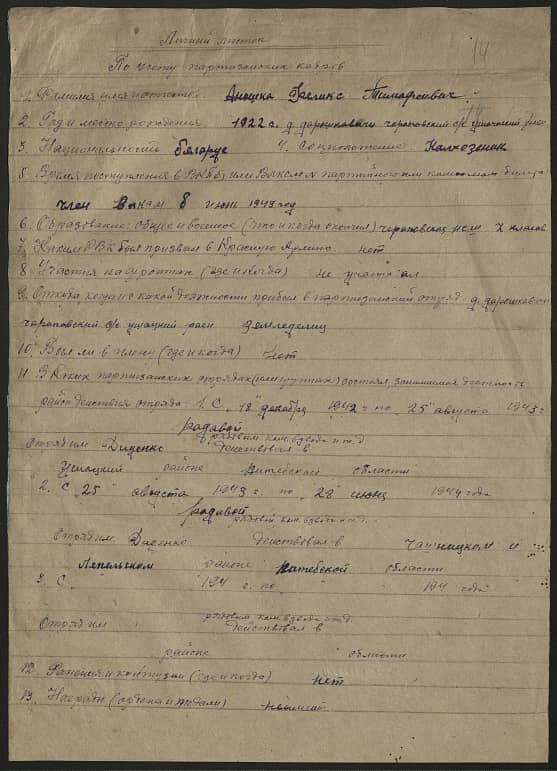 Личный листок
14
По учету партизанских кадров
1. Фамилия имя отчество Аношка Феликс Тимофеевич
2. Год и место рождения 1922 г. д. дорошковичи чераповский с/с ушачский
3. Национальность белорус 4. Соцположение Калхозник
5. Время поступления в или партийного или комсомол билета
член 8 июнь 1943 год
6. Образование: общее и военное (что и когда окончил) чераповская X класов
7. Каким РВК был призван в Красную Армию нет
8. Участия на фронтах (где и когда) не участвовал
9. Откуда когда и с какой должности прибыл в партизанский отряд д. дорошкович
чераповский с/с ушацкий район земледелец
10. Был ли в плену (где и когда) нет
11. В каких партизанских отрядах (или группах) состоял, занимаемая должность
район действия отряда 1. С "18" декабря 1942 г. по "25" августа 1943 г.
радавой
рядовым, ком. взвода и т.д.
Отряд им. Диденко действовал в
Ушацкий районе Витебской области
2. С "25" августа 1943 г. по "28" июнь 1944 года
радавой
рядовым, ком. взвода и т.д.
Отряд им. Диденко действовал в Чашницком и
Лепельском районе Витебской области
3. С 194 г. по 194 года
рядовым ком. взвода и т.д.
Отряд им. действовал в
районе области
12. Ранения и контузии (где и когда) нет
13. Награды (ордена и медали)